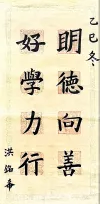 乙巳冬
明德向善
好學力行
洪銘希